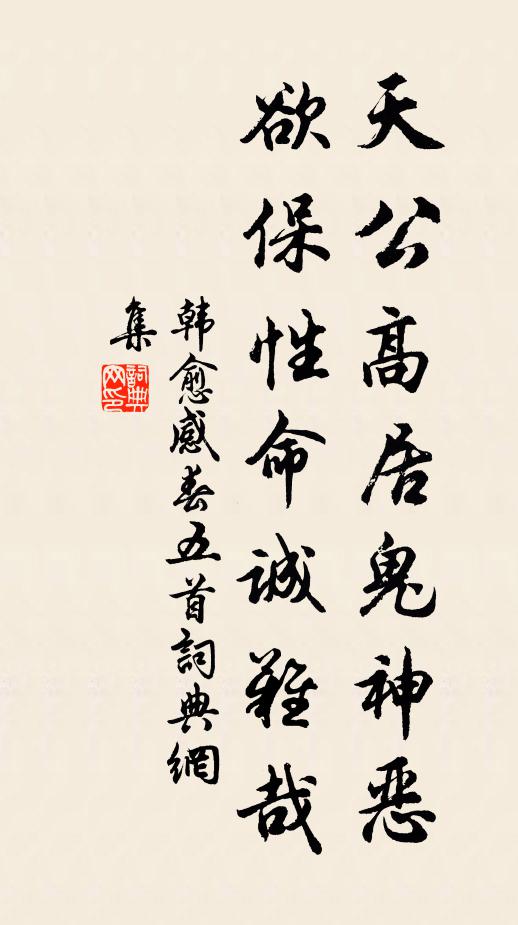 天公高居鬼神惡
欲保性命誠難哉
韩愈感春五首詞典網
集
詞典
网印